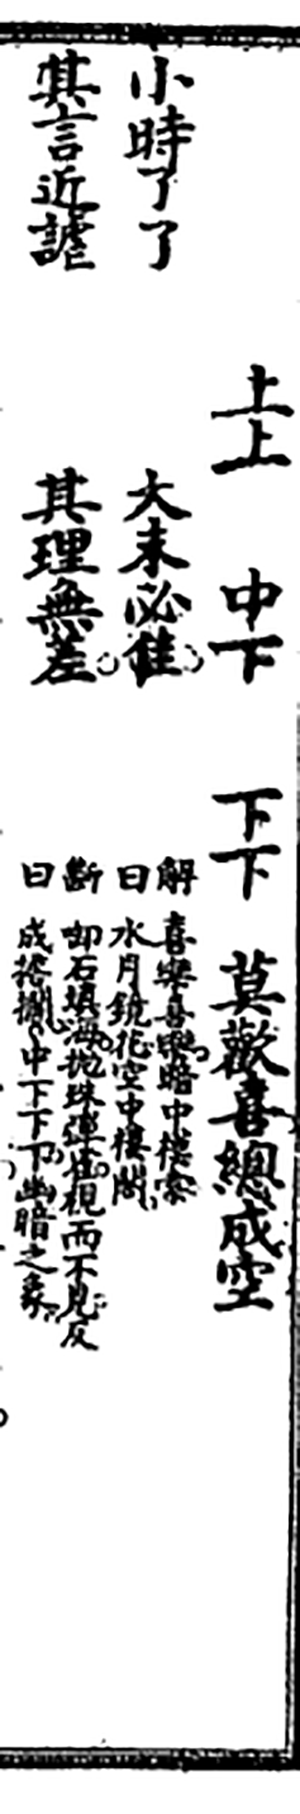 上上 中下 下下 莫歡喜總成空
小時了了 大未必佳
其言近謔 其理無差
解曰 喜樂喜樂暗中樓索
水月鏡花空中樓閣
斷曰 卸石填海抛珠彈雀視而不見反
成捨擲中下下下幽暗之象